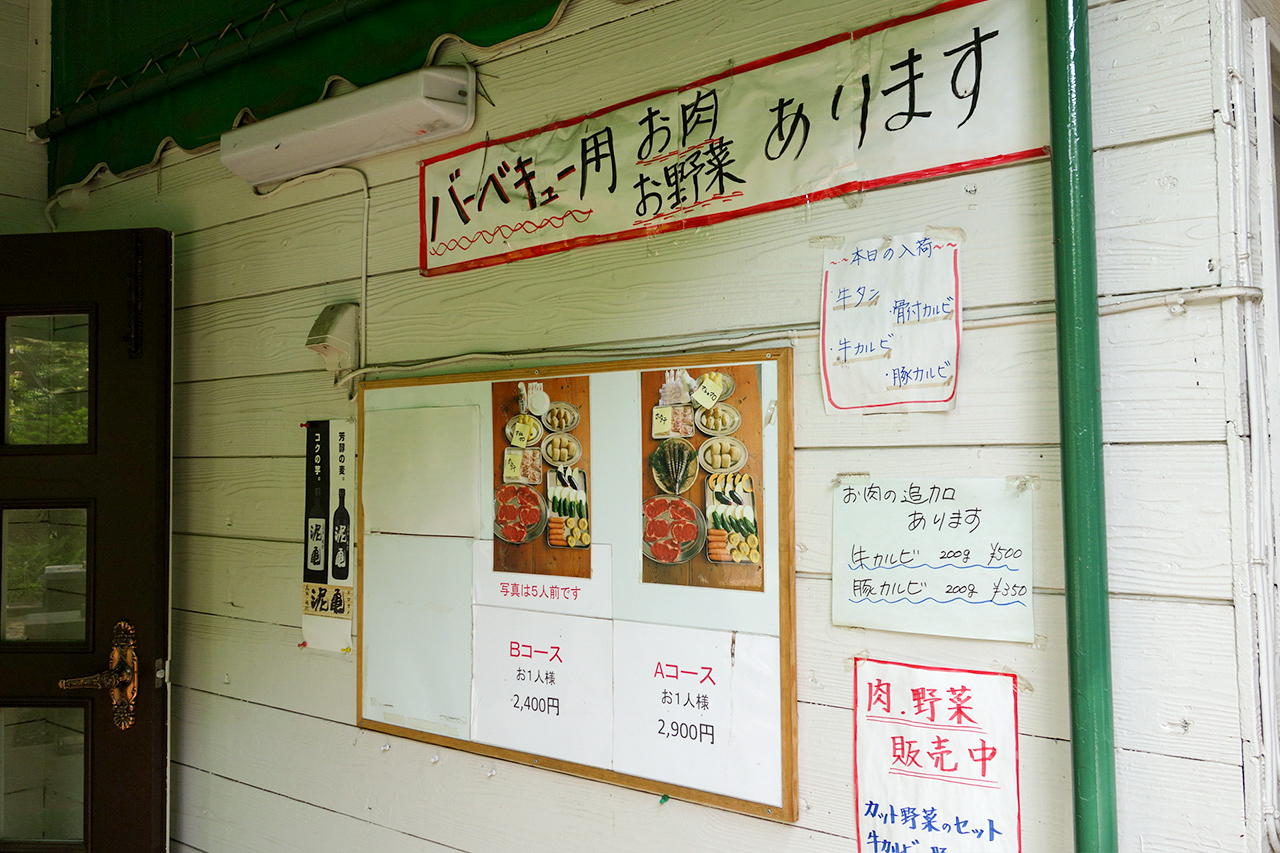 バーベキュー用 お肉 お野菜 あります
~~本日の入荷~~
・牛タン
・骨付カルビ
・牛カルビ
・豚カルビ
コクの芋。
芳醇の麦。
泥亀
泥亀
泥亀
写真は5人前です
Bコース
お1人様
2,400円
Aコース
お1人様
2,900円
お肉の追加
あります
牛カルビ 200g ¥500
豚カルビ 200g ¥350
肉.野菜
販売中
カット野菜のセット
牛カルビ 豚